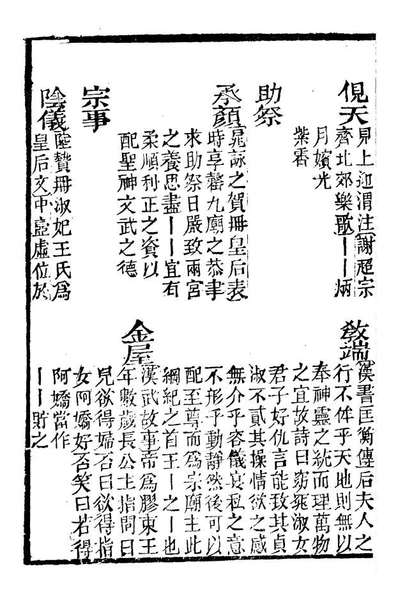 俔天
見上迎渭注謝超宗
齊北郊樂歌丨丨炳
月嬪光
紫霄
助祭
承顏
晁詠之賀冊皇后表
時享馨九廟之恭聿
求助祭日嚴致兩宮
之養思盡丨丨宜有
柔順利正之資以
配聖神文武之德
宗事
陰儀
陸贄冊淑妃王氏爲
皇后文中壼虛位於
敎端
漢書匡衡傳后夫人之
行不侔乎天地則無以
奉神靈之統而理萬物
之宜故詩曰窈窕淑女
君子好仇言能致其貞
淑不貳其操情欲之感
無介乎容儀宴私之意
不形乎動靜然後可以
配至尊而爲宗廟主此
綱紀之首王丨之丨也
金屋
漢武故事帝爲膠東王
年數歲長公主指問曰
兒欲得婦否曰欲得指
女阿嬌好否笑曰若得
阿嬌當作
丨丨貯之